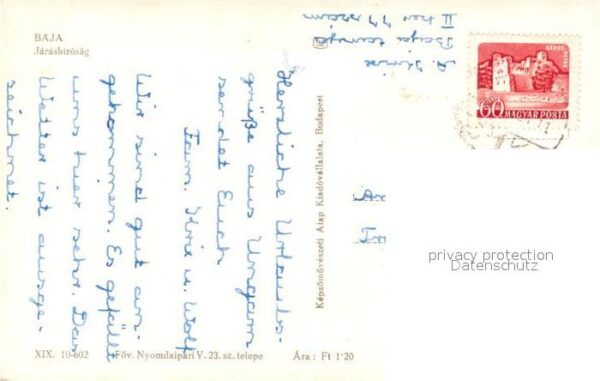 BAJA
Járásbíróság
Herzliche Urlaubs-
grüße aus Ungarn
sendet Euch
Fam. u. Wolf
Wir sind gut an-
gekommen. Es gefällt
uns hier sehr. Das
Wetter ist ausge-
zeichnet.
XIX. 10-602
Főv. Nyomdaipari V. 23. sz. telepe
Ára: Ft 1·20
Képzőművészeti Alap Kiadóvállalata, Budapest
Baja
II 77
SÁROS-
60
MAGYAR POSTA
privacy protection
Datenschutz